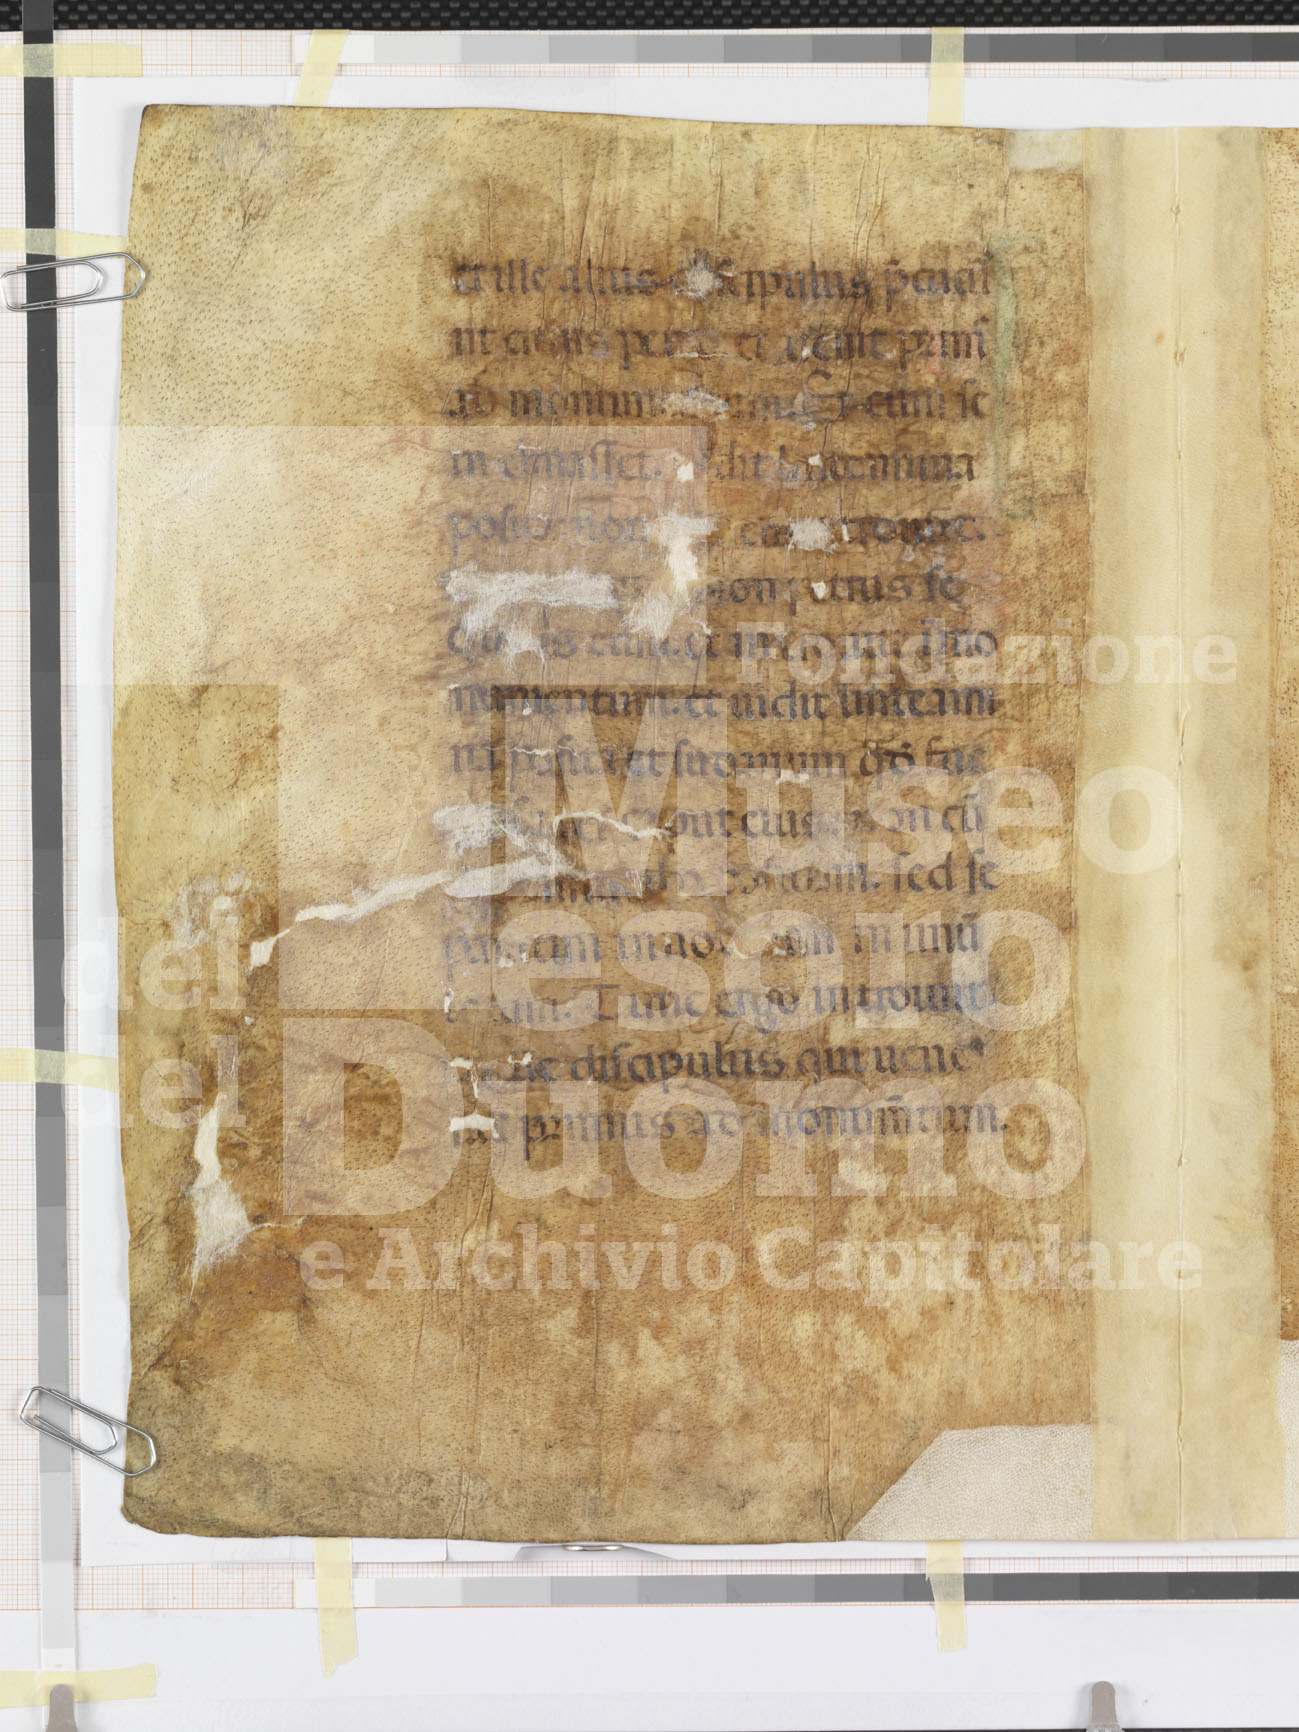 et ille alius discipulus p̄cucur̄
rit citius petro et uenit prim̄
ad monum Et cum se
inclinasset. uidit linteamina
posita non introiuit.
simon petrus se
quens eum. et introiuit
numentum. et uidit linteami
na posita et sudarium qd̄ fue
rat eius non cū̄
positum. sed se
paratim inuolutum in unū
locum. Tunc ergo introiuit
ille discipulus qui uene
rat primus ad monum̄tum.
Fondazione
Museo
del Tesoro
del Duomo
e Archivio Capitolare